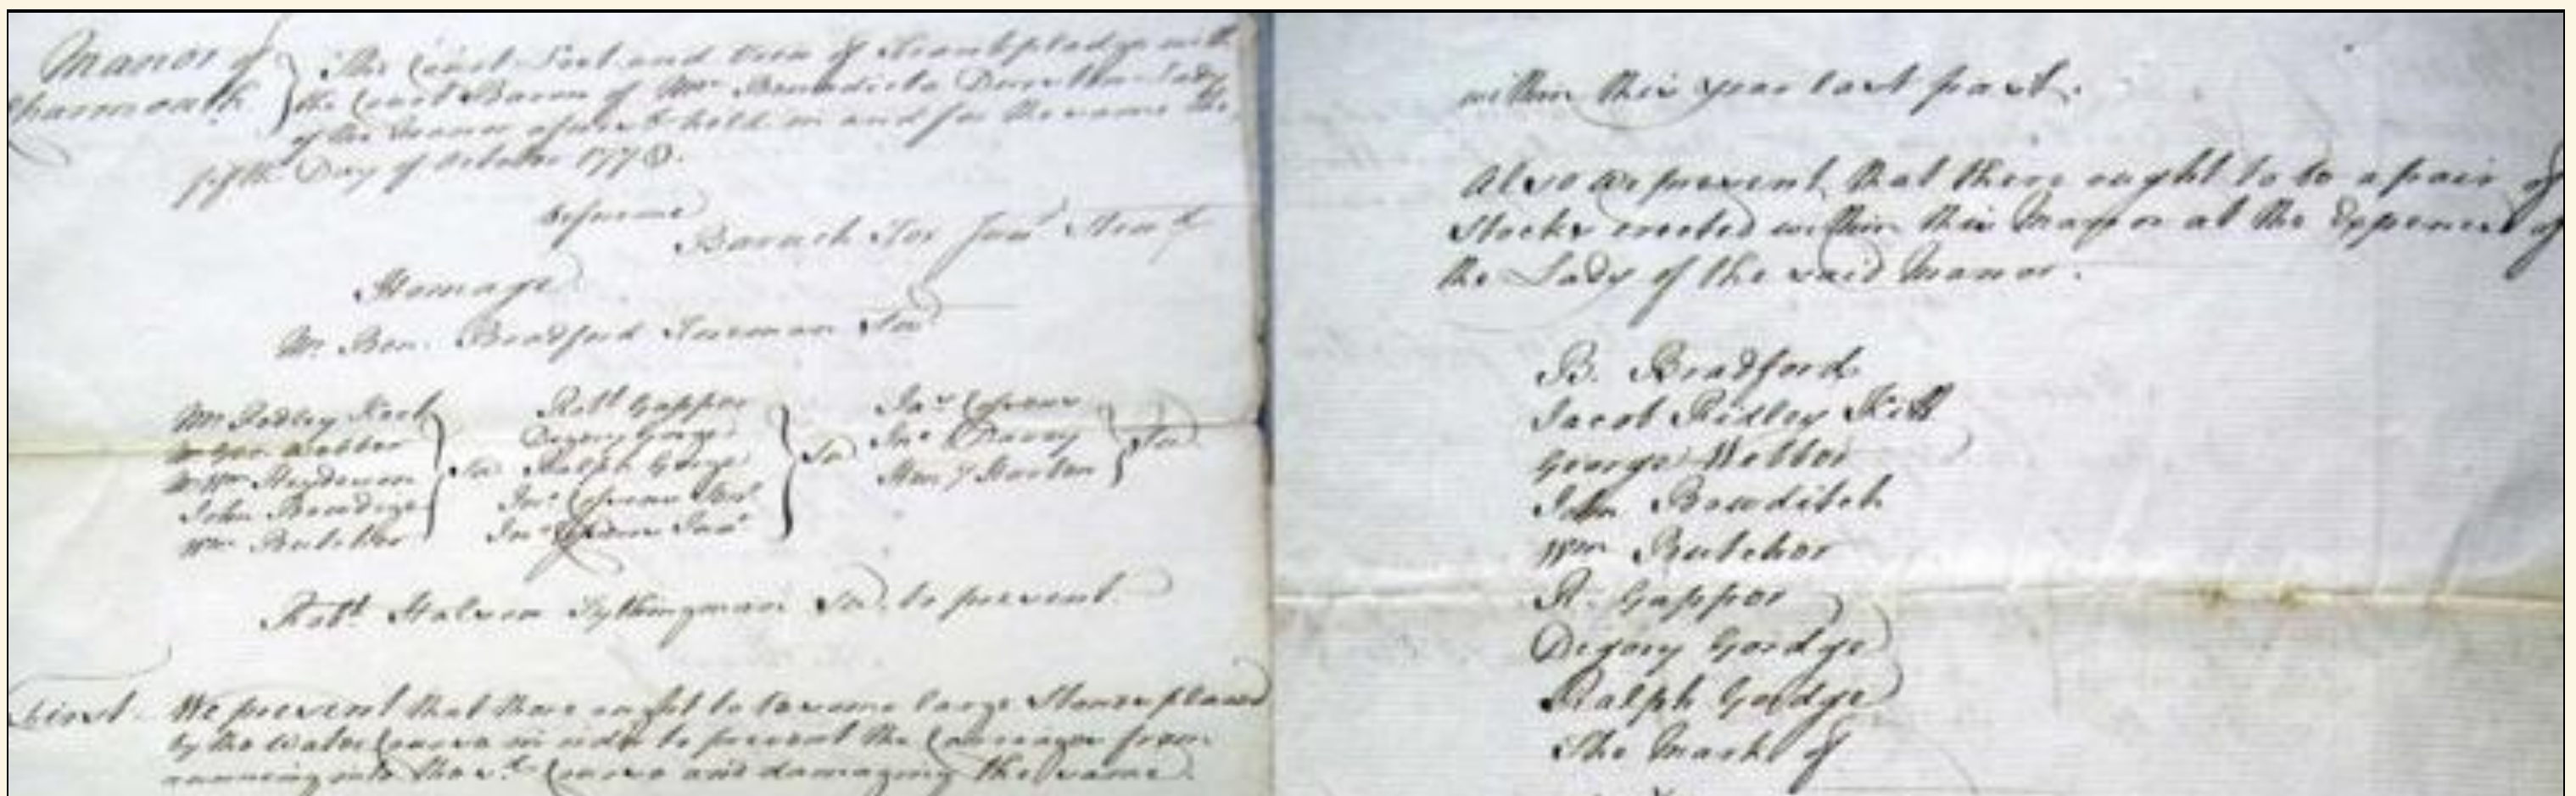 Manor of
Charmouth
The Court Leet and View of Frankpledge with
the Court Baron of Mrs Benedicta Durston Lady
of the Manor afores.d held in and for the same the
fifth Day of October 177
before me
Baruch Fox Jun.r Stew.d
Homage
Mr Ben. Bradford Foreman Sw.
Mr Ridley Kitt
Mr Geo. Webber
Mr Wm
John Bowditch
Wm Butcher
Sw.
Rob.t Gapper
Degory Gordge
Ralph Gordge
Jn.o Sen.r
Jn.o Jun.r
Sw.
Ja.s
Jn.o Davey
Sw.
Rob.t Tythingman Sw. to present
First We present that there ought to be some large Stones placed
by the Water Course in order to prevent the Carriages from
running into the s.d Course and damaging the same.
within this year last past.
Also We present that there ought to be a pair of
Stocks erected within this Manor at the Expence of
the Lady of the said Manor.
B. Bradford
Jacob Ridley Kitt
George Webber
John Bowditch
Wm Butcher
R. Gapper
Degory Gordge
Ralph Gordge
The Mark of